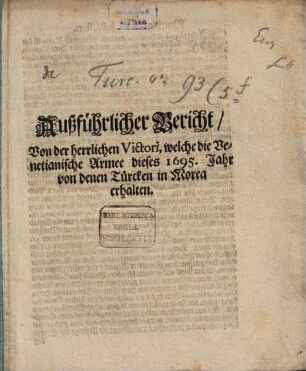 Turc.
93 (5
Außführlicher Bericht/
Von der herrlichen Victori, welche die Ve-
netianische Armee dieses 1695. Jahr
von denen Türcken in Morea
erhalten.
BIBLIOTHECA
REGIA
MONACENSIS